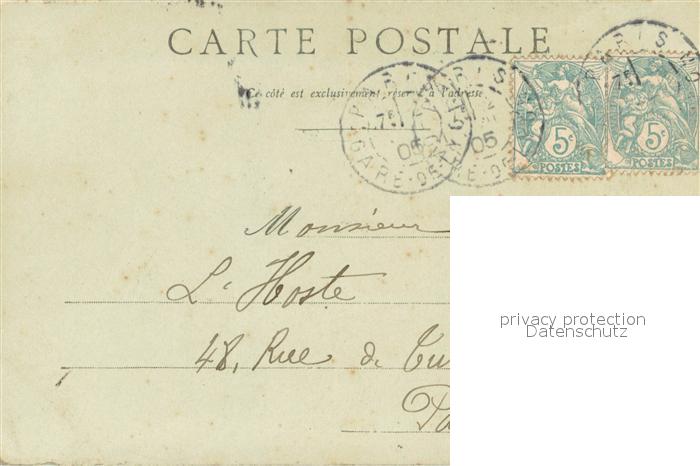 CARTE POSTALE
Ce côté est exclusivement réservé à l'adresse
PARIS
7E
05
GARE DE
5c
POSTES
5c
POSTES
Monsieur
L'Hoste
48, Rue de Tu
Pa
privacy protection
Datenschutz